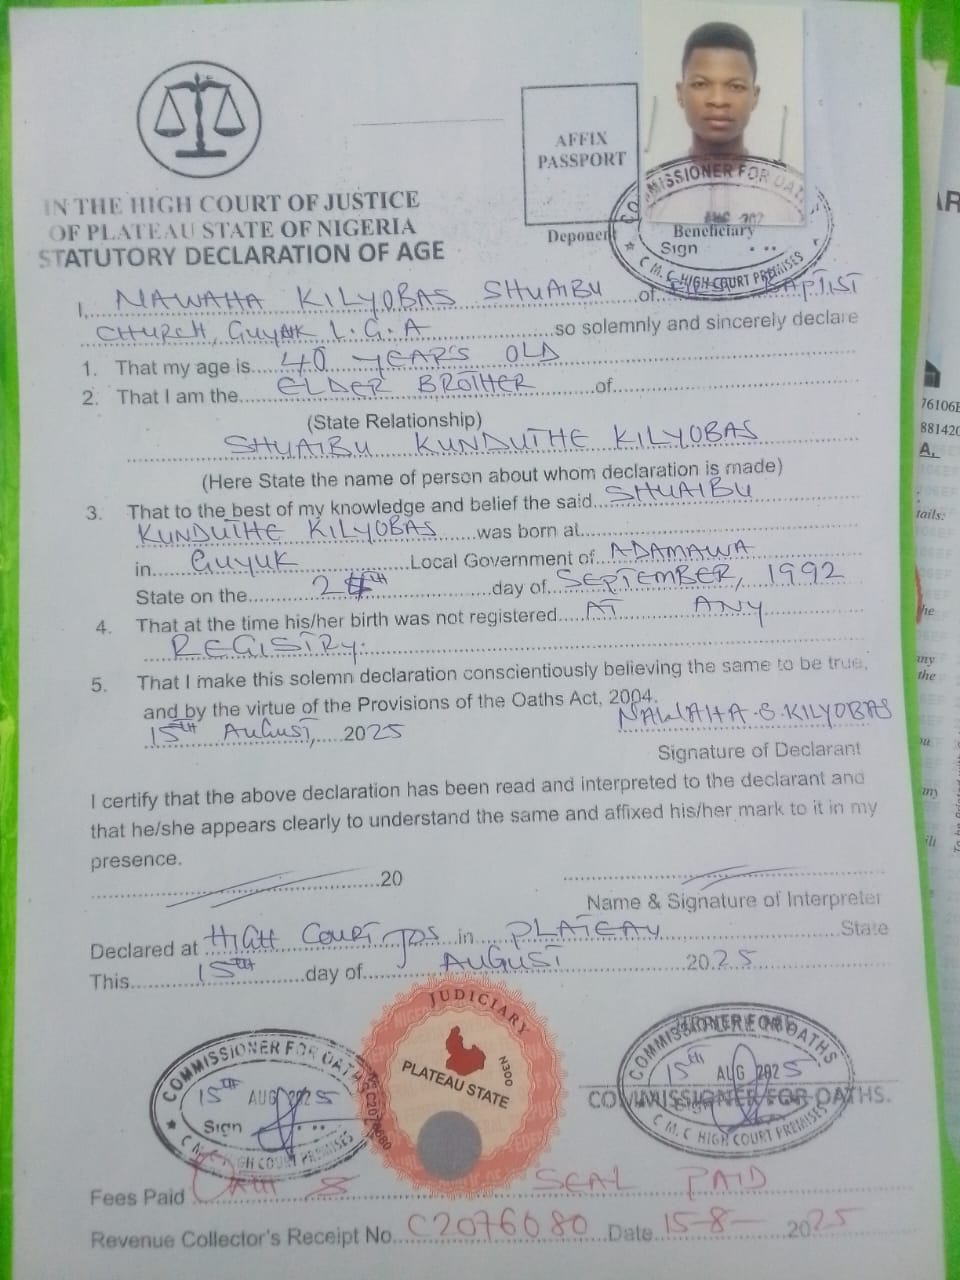 AFFIX
PASSPORT
Deponent
Beneficiary
COMMISSIONER FOR OATHS
Sign
C. M. C HIGH COURT PREMISES
IN THE HIGH COURT OF JUSTICE
OF PLATEAU STATE OF NIGERIA
STATUTORY DECLARATION OF AGE
I, NAWAHA KILYOBAS SHUAIBU of BAPTIST
CHURCH, GUYUK L.G.A so solemnly and sincerely declare
1. That my age is 40 YEAR'S OLD
2. That I am the ELDER BROTHER of
(State Relationship)
SHUAIBU KUNDUTHE KILYOBAS
(Here State the name of person about whom declaration is made)
3. That to the best of my knowledge and belief the said SHUAIBU
KUNDUTHE KILYOBAS was born at
in GUYUK Local Government of ADAMAWA
State on the day of SEPTEMBER, 1992
4. That at the time his/her birth was not registered AT ANY
REGISTRY.
5. That I make this solemn declaration conscientiously believing the same to be true,
and by the virtue of the Provisions of the Oaths Act, 2004.
15TH AUGUST, 2025 NAWAHA.S.KILYOBAS
Signature of Declarant
I certify that the above declaration has been read and interpreted to the declarant and
that he/she appears clearly to understand the same and affixed his/her mark to it in my
presence.
20
Name & Signature of Interpreter
Declared at HIGH COURT JOS in PLATEAU State
This 15TH day of AUGUST 2025
COMMISSIONER FOR OATHS
15TH AUG 2025
Sign
C M C HIGH COURT PREMISES
JUDICIARY
PLATEAU STATE
N300
COMMISSIONER FOR OATHS
15th AUG 2025
COMMISSIONER FOR OATHS.
C M. C HIGH COURT PREMISES
Fees Paid OATH & SEAL PAID
Revenue Collector's Receipt No. C2076080 Date 15-8- 2025